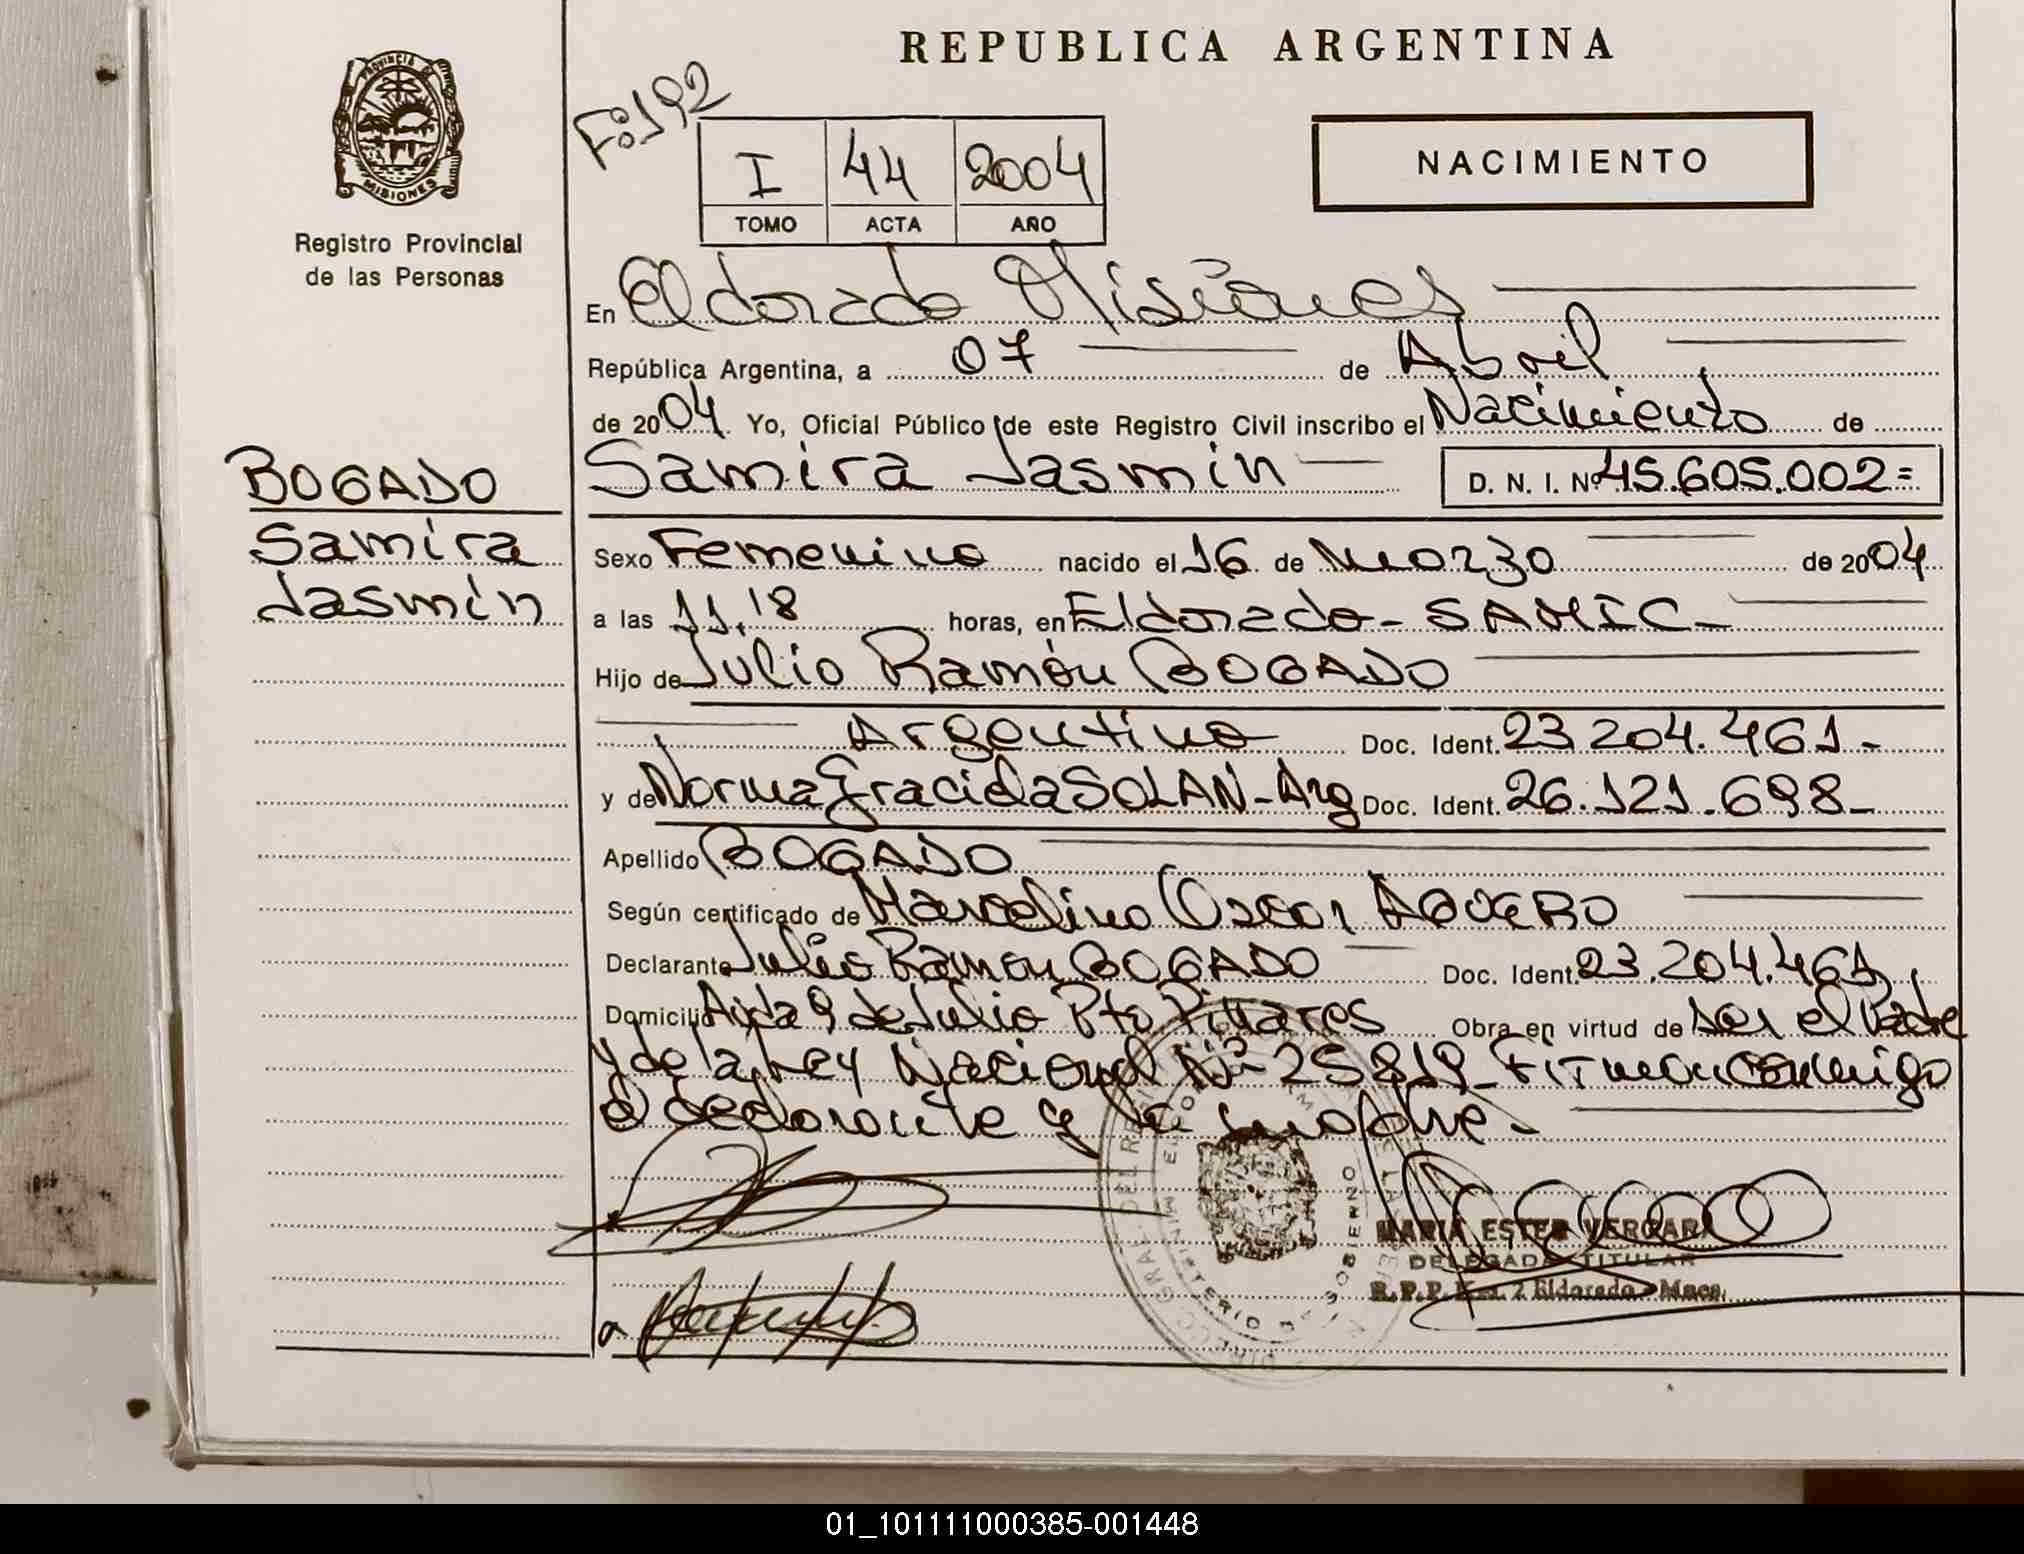 REPUBLICA ARGENTINA
PROVINCIA DE
MISIONES
Registro Provincial
de las Personas
F:192
I 44 2004
TOMO ACTA AÑO
NACIMIENTO
En Eldorado Misiones
República Argentina, a 07 de Abril
de 2004. Yo, Oficial Público de este Registro Civil inscribo el Nacimiento de
BOGADO
Samira
Jasmin
Samira Jasmin D. N. I. Nº 45.605.002=
Sexo Femenino nacido el 16 de Marzo de 2004
a las 11,18 horas, en Eldorado - SAMIC -
Hijo de Julio Ramón BOGADO
Argentino Doc. Ident. 23.204.461.-
y de Norma Gracida SOLAN - Arg Doc. Ident. 26.121.698-
Apellido BOGADO
Según certificado de Marcelino Oscar AGUERO
Declarante Julio Ramon BOGADO Doc. Ident. 23.204.461,
Domicilio Avda 9 de Julio Pto Pinares Obra en virtud de ser el Padre
y de la Ley Nacional Nº 25819- Firman conmigo
el declarante y la madre.-
MARIA ESTER VERGARA
DELEGADA TITULAR
Eldorado
01_101111000385-001448